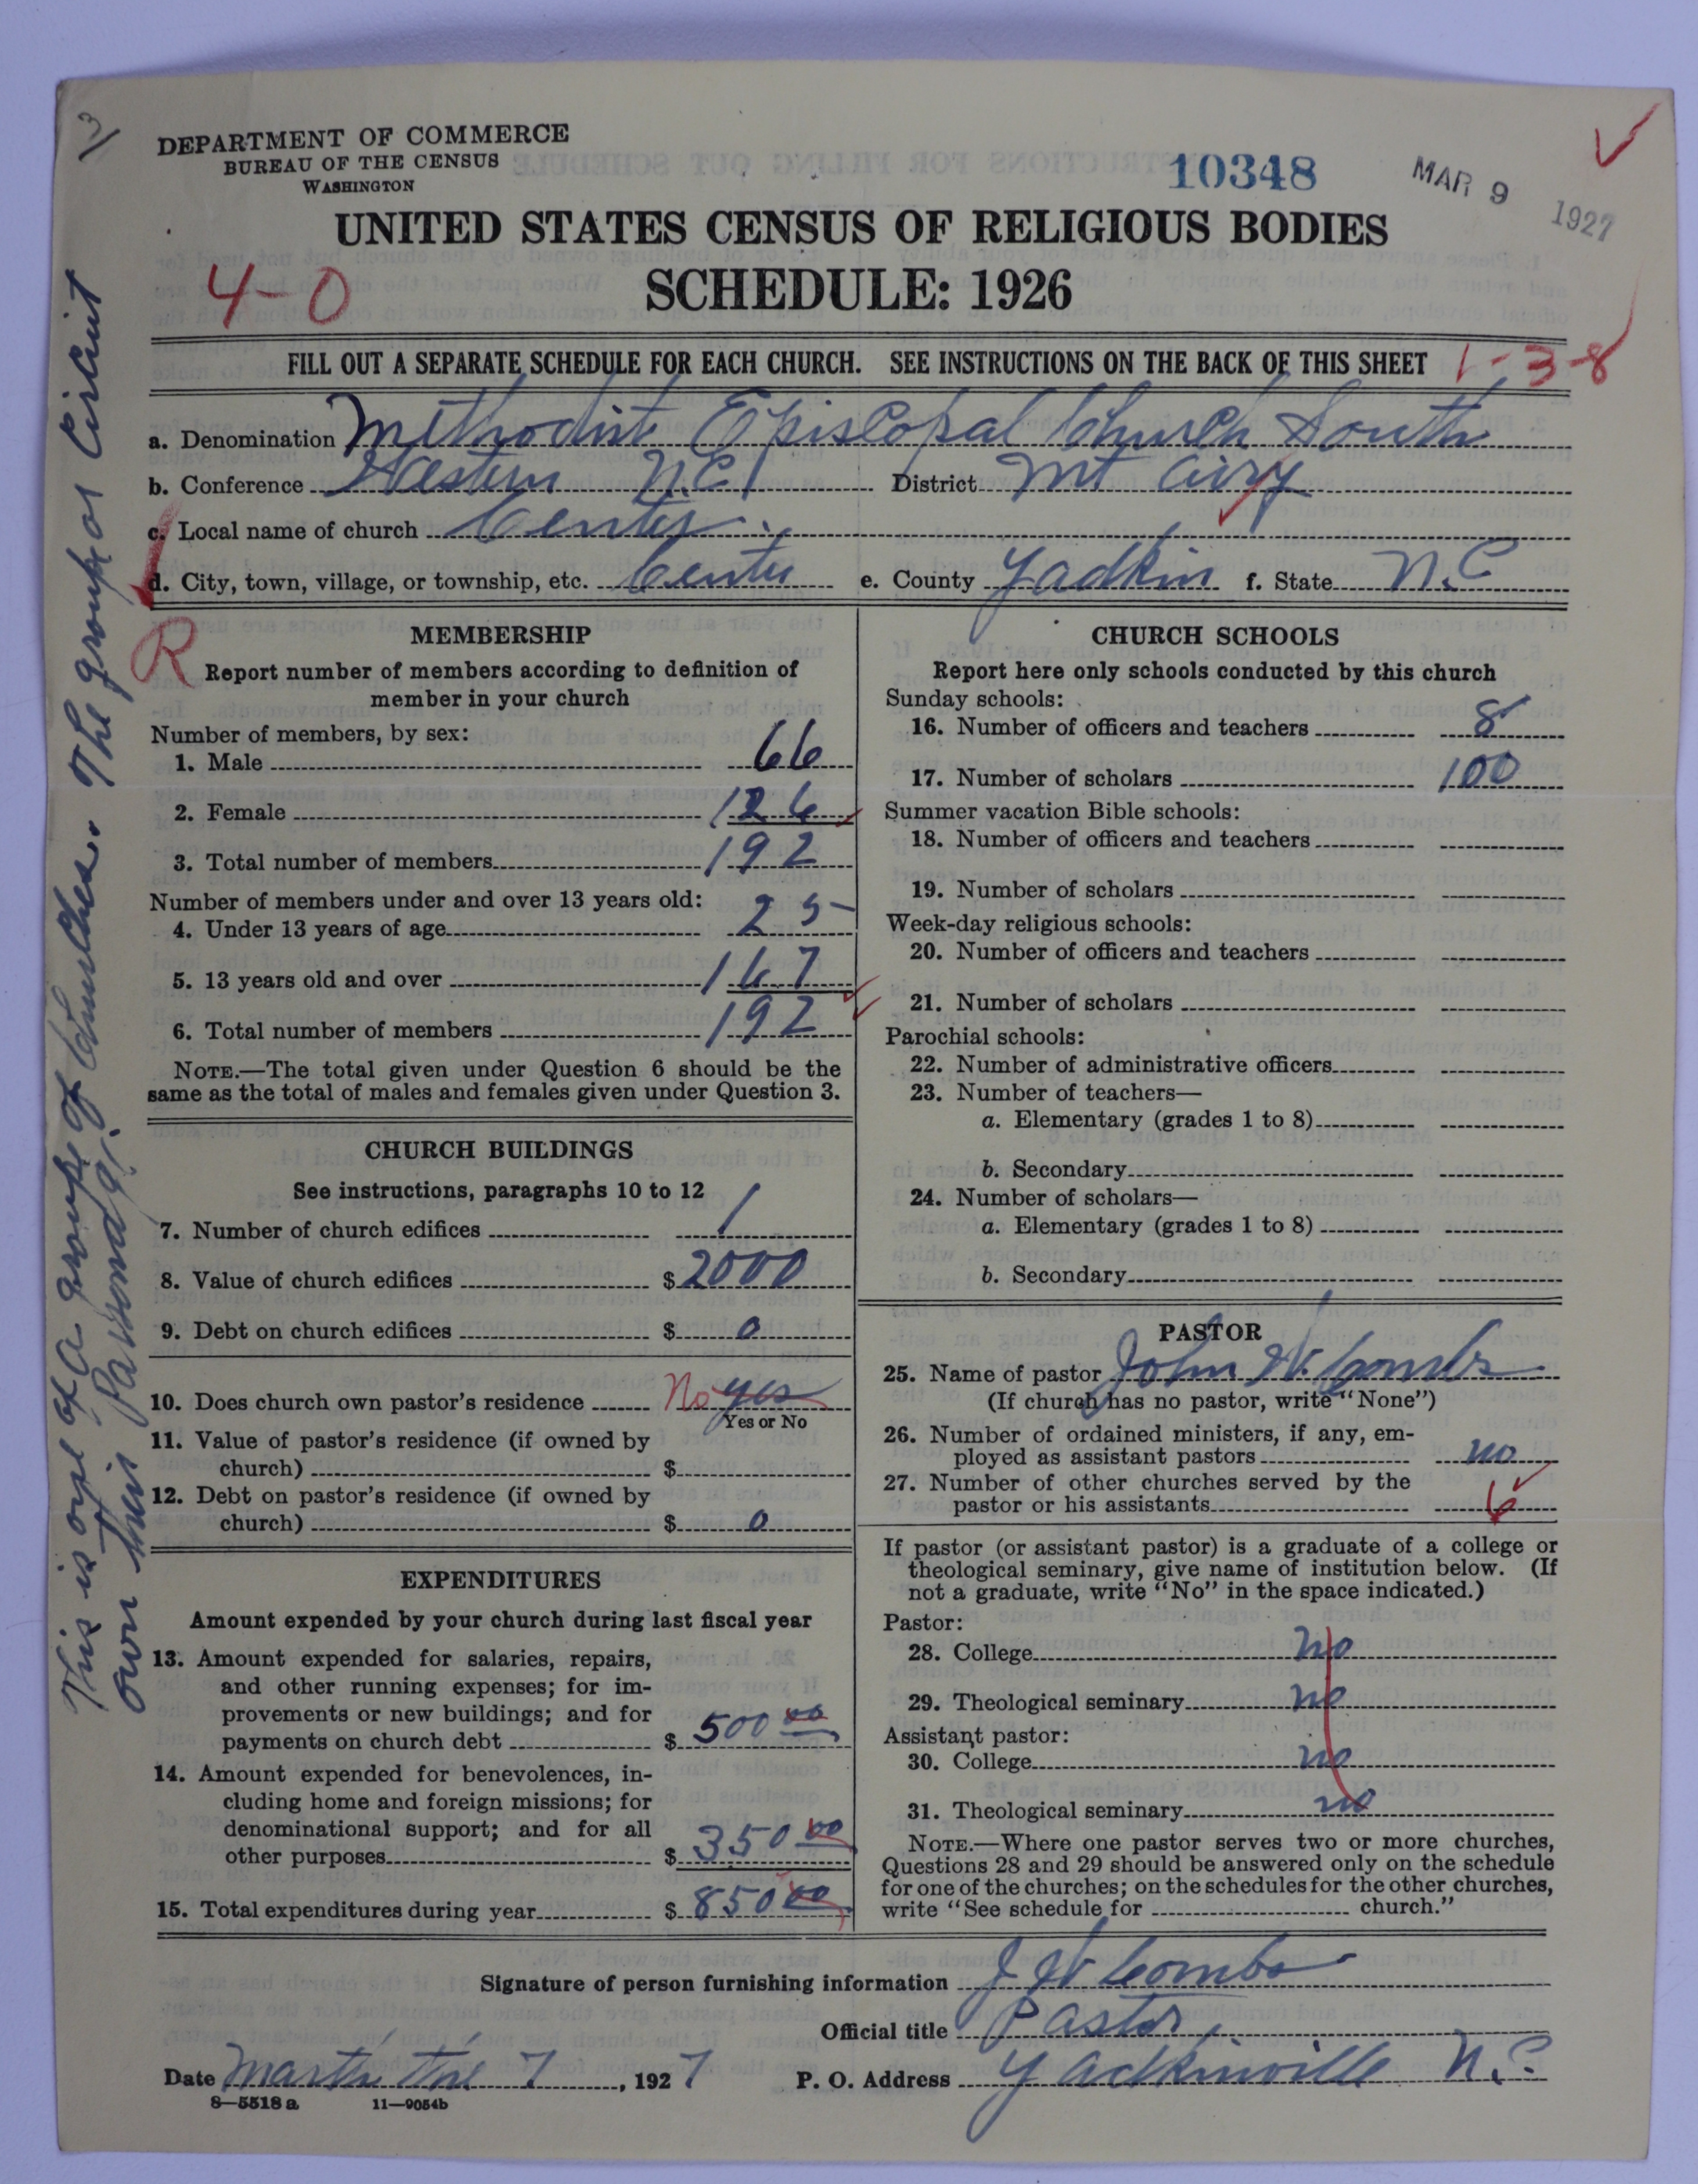 DEPARTMENT OF COMMERCE
BUREAU OF THE CENSUS
WASHINGTON
10348
MAR 9 1927
UNITED STATES CENSUS OF RELIGIOUS BODIES
4-0
SCHEDULE: 1926
FILL OUT A SEPARATE SCHEDULE FOR EACH CHURCH. SEE INSTRUCTIONS ON THE BACK OF THIS SHEET
1-3-8
a. Denomination Methodist Episcopal Church South
b. Conference Western N.C. District Mt Airy
c. Local name of church Center
d. City, town, village, or township, etc. Center e. County Yadkin f. State N.C
R
MEMBERSHIP
Report number of members according to definition of
member in your church
Number of members, by sex:
1. Male 66
2. Female 126
3. Total number of members 192
Number of members under and over 13 years old:
4. Under 13 years of age 25
5. 13 years old and over 167
6. Total number of members 192
NOTE.—The total given under Question 6 should be the
same as the total of males and females given under Question 3.
CHURCH BUILDINGS
See instructions, paragraphs 10 to 12
7. Number of church edifices 1
8. Value of church edifices $ 2000
9. Debt on church edifices $ 0
10. Does church own pastor's residence No yes
Yes or No
11. Value of pastor's residence (if owned by
church) $
12. Debt on pastor's residence (if owned by
church) $ 0
EXPENDITURES
Amount expended by your church during last fiscal year
13. Amount expended for salaries, repairs,
and other running expenses; for im-
provements or new buildings; and for
payments on church debt $ 500 00
14. Amount expended for benevolences, in-
cluding home and foreign missions; for
denominational support; and for all
other purposes $ 350 00
15. Total expenditures during year $ 850 00
CHURCH SCHOOLS
Report here only schools conducted by this church
Sunday schools:
16. Number of officers and teachers 8
17. Number of scholars 100
Summer vacation Bible schools:
18. Number of officers and teachers
19. Number of scholars
Week-day religious schools:
20. Number of officers and teachers
21. Number of scholars
Parochial schools:
22. Number of administrative officers
23. Number of teachers—
a. Elementary (grades 1 to 8)
b. Secondary
24. Number of scholars—
a. Elementary (grades 1 to 8)
b. Secondary
PASTOR
25. Name of pastor John W. Combs
(If church has no pastor, write "None")
26. Number of ordained ministers, if any, em-
ployed as assistant pastors no
27. Number of other churches served by the
pastor or his assistants 6
If pastor (or assistant pastor) is a graduate of a college or
theological seminary, give name of institution below. (If
not a graduate, write "No" in the space indicated.)
Pastor:
28. College no
29. Theological seminary no
Assistant pastor:
30. College no
31. Theological seminary no
NOTE.—Where one pastor serves two or more churches,
Questions 28 and 29 should be answered only on the schedule
for one of the churches; on the schedules for the other churches,
write "See schedule for church."
Signature of person furnishing information J W Combs
Official title Pastor
Date March the 7, 1927 P. O. Address Yadkinville N.C.
8—5518 a 11—9054b
This is one of a group of Churches. The group or Circuit
own their parsonage.